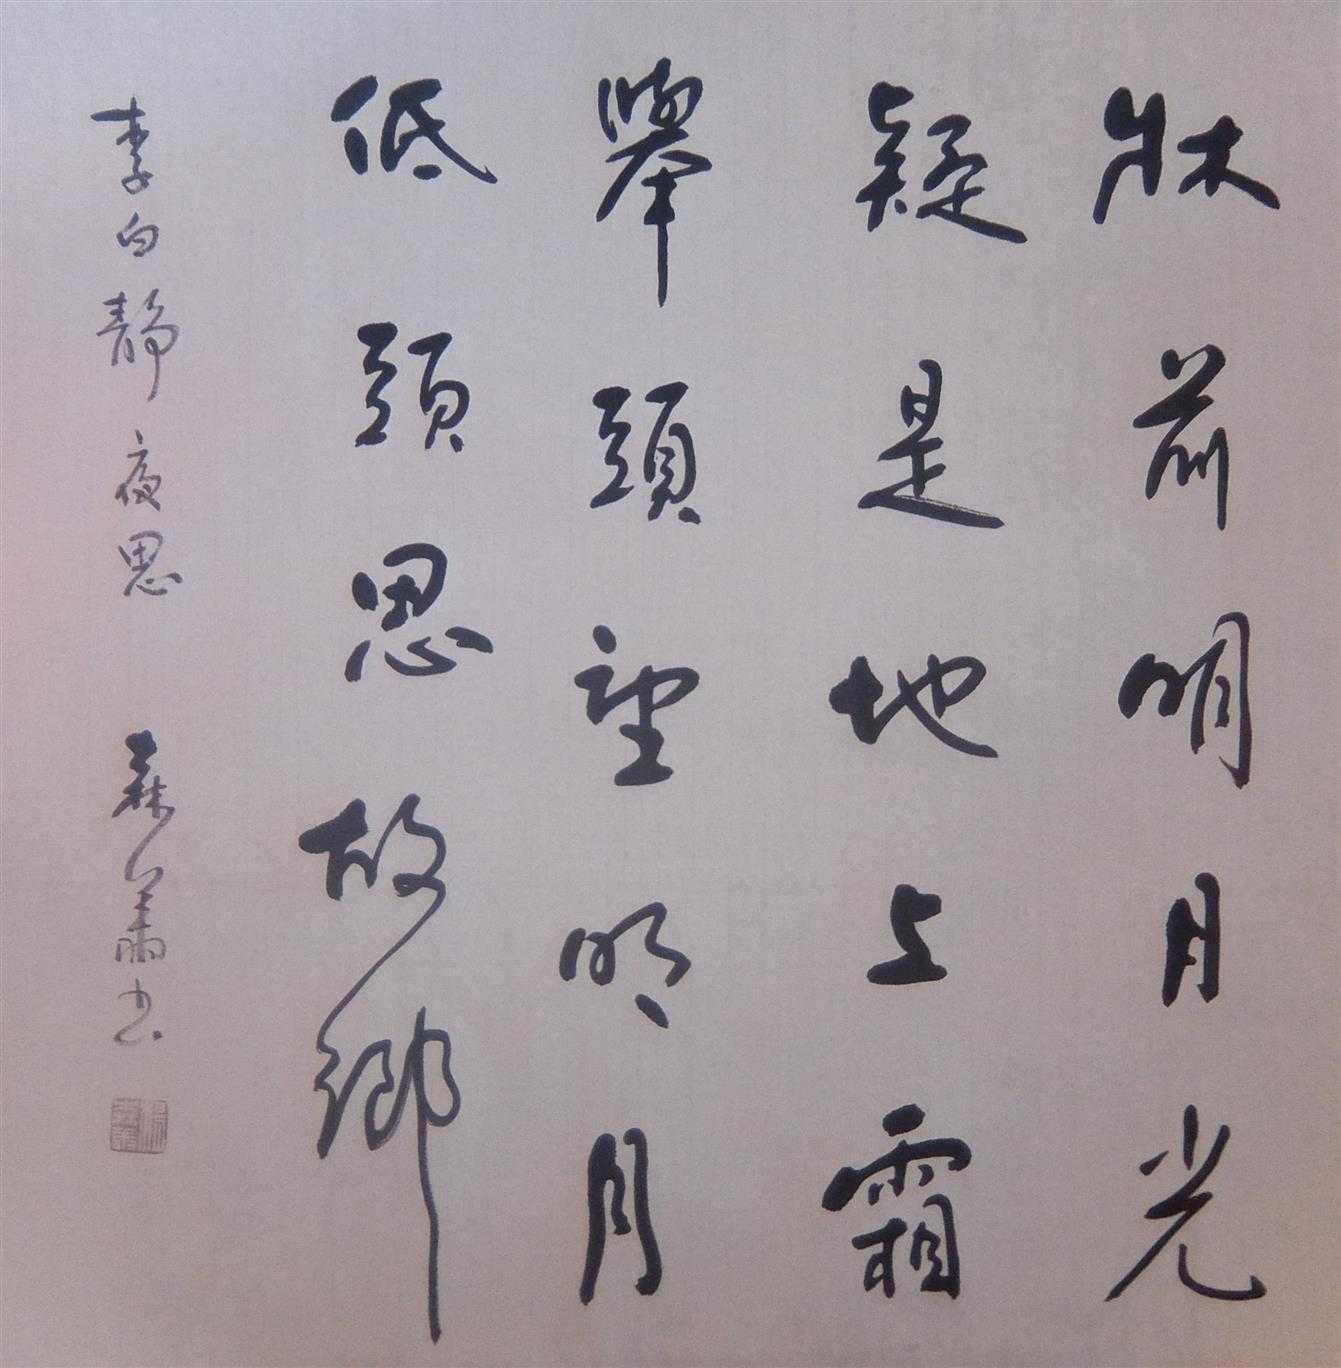 牀前明月光
疑是地上霜
舉頭望明月
低頭思故鄉
李白靜夜思 書